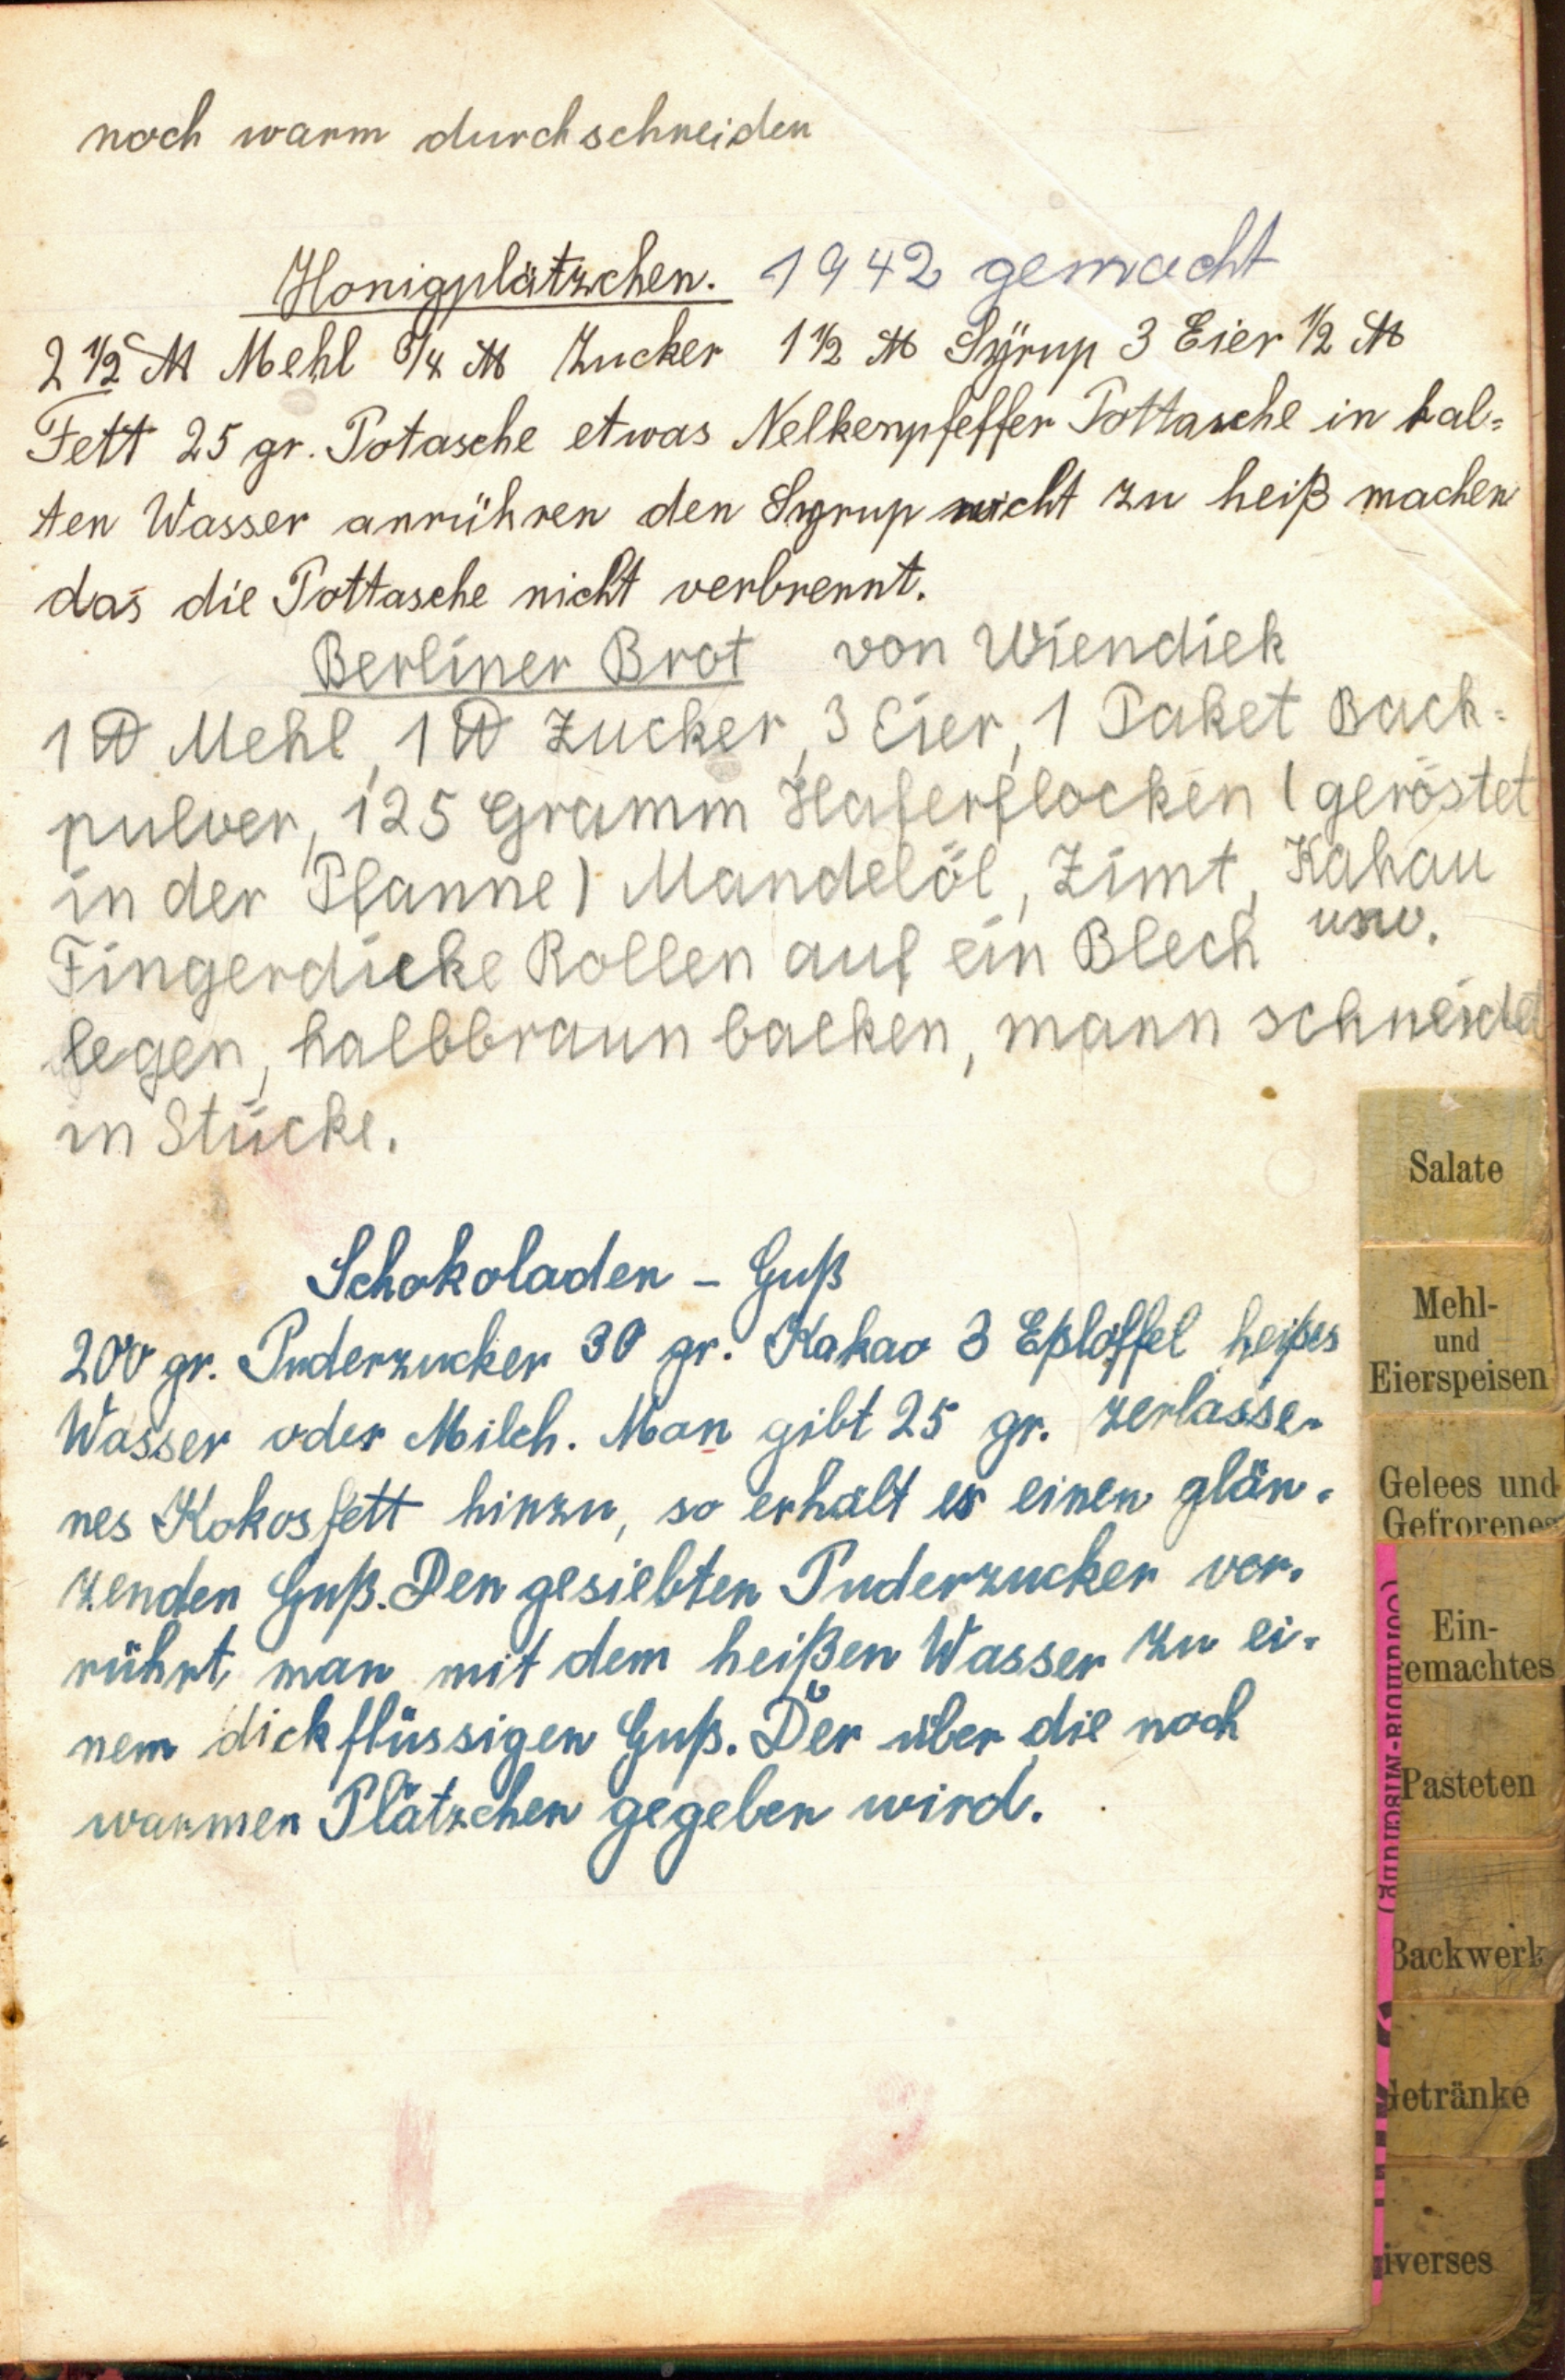 noch warm durchschneiden
Honigplätzchen. 1942 gemacht
2 1/2 ℔ Mehl 3/4 ℔ Zucker 1 1/2 ℔ Syrup 3 Eier 1/2 ℔
Fett 25 gr. Potasche etwas Nelkenpfeffer Pottasche in kal=
ten Wasser anrühren den Syrup nicht zu heiß machen
das die Pottasche nicht verbrennt.
Berliner Brot von Wiendiek
1 ℔ Mehl, 1 ℔ Zucker, 3 Eier, 1 Paket Back=
pulver, 125 Gramm Haferflocken (geröstet
in der Pfanne) Mandelöl, Zimt, Kakau
usw.
Fingerdicke Rollen auf ein Blech
legen, halbbraun backen, mann schneidet
in Stücke.
Schokoladen - Guß
200 gr. Puderzucker 30 gr. Kakao 3 Eßlöffel heißes
Wasser oder Milch. Man gibt 25 gr. zerlasse-
nes Kokosfett hinzu, so erhält es einen glän-
zenden Guß. Den gesiebten Puderzucker ver-
rührt man mit dem heißen Wasser zu ei-
nem dickflüssigen Guß. Der über die noch
warmen Plätzchen gegeben wird.
Salate
Mehl-
und
Eierspeisen
Gelees und
Gefrorenes
Ein-
emachtes
Pasteten
Backwerk
Getränke
iverses